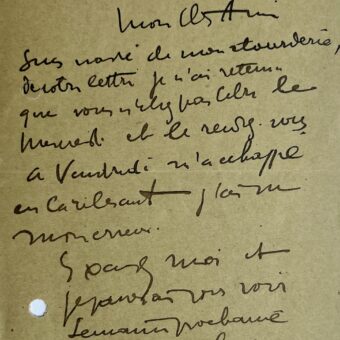 Mon Cher Ami
Suis navré de mon étourderie,
de votre lettre je n'ai retenu
que vous n'étiez pas libre le
mercredi et le rendez-vous
à Vendredi m'a échappé
en la relisant j'ai vu
mon erreur.
Excusez moi et
je passerai vous voir
Semaine prochaine